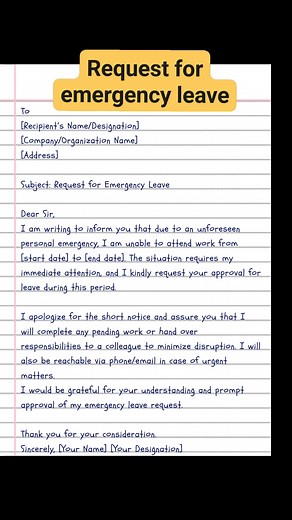 Request for
emergency leave
To
[Recipient's Name/Designation]
[Company/Organization Name]
[Address]
Subject: Request for Emergency Leave
Dear Sir,
I am writing to inform you that due to an unforeseen
personal emergency, I am unable to attend work from
[start date] to [end date]. The situation requires my
immediate attention, and I kindly request your approval for
leave during this period.
I apologize for the short notice and assure you that I
will complete any pending work or hand over
responsibilities to a colleague to minimize disruption. I will
also be reachable via phone/email in case of urgent
matters.
I would be grateful for your understanding and prompt
approval of my emergency leave request.
Thank you for your consideration.
Sincerely, [Your Name] [Your Designation]